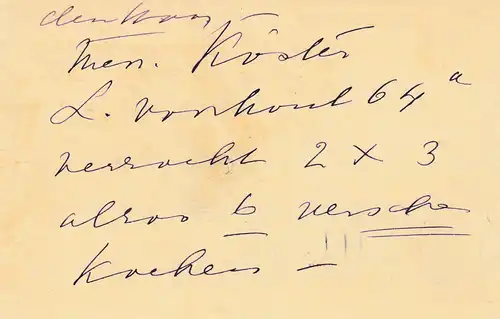 den Haag
Mev. Köster
L. voorhout 64a
verzocht 2 x 3
alzoo 6 versche
Koeken –